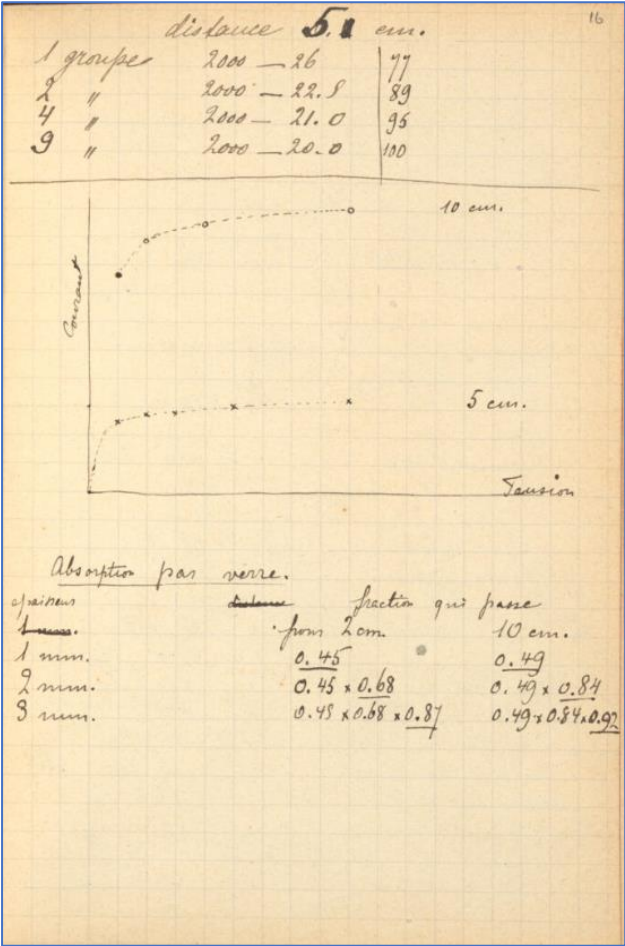 16
distance 5.1 cm.
1 groupe 2000 — 26 77
2 " 2000 — 22.5 89
4 " 2000 — 21.0 95
9 " 2000 — 20.0 100
10 cm.
Courant
5 cm.
Tension
Absorption par verre.
epaisseur distance fraction qui passe
1 mm. pour 2 cm. 10 cm.
1 mm. 0.45 0.49
2 mm. 0.45 x 0.68 0.49 x 0.84
3 mm. 0.45 x 0.68 x 0.87 0.49 x 0.84 x 0.92